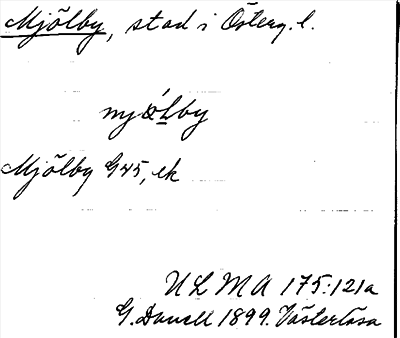 Mjölby, stad i Österg. l.
Mjölby G45, ek
ULMA 175:121a
G. Danell 1899. Västerlösa